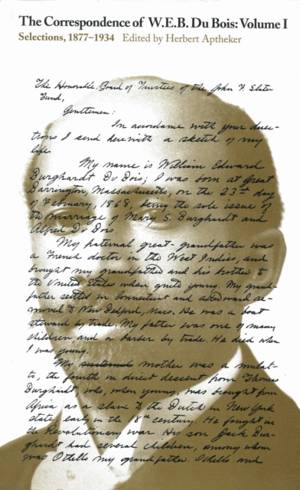 The Correspondence of W.E.B. Du Bois: Volume I
Selections, 1877–1934 Edited by Herbert Aptheker
The Honorable Board of Trustees of the John F. Slater
Fund,
Gentlemen:
In accordance with your direc-
tions I send herewith a sketch of my
life.
My name is William Edward
Burghardt Du Bois; I was born at Great
Barrington, Massachusetts, on the 23rd day
of February, 1868, being the sole issue of
the marriage of Mary S. Burghardt and
Alfred Du Bois
My paternal great-grandfather was
a French doctor in the West Indies, and
brought my grandfather and his brother to
the United States when quite young. My grand-
father settled in Connecticut and afterward re-
moved to New Bedford, Mass. He was a boat
steward by trade. My father was one of many
children and a barber by trade. He died when
I was young.
My mother was a mulat-
to, the fourth in direct descent from Thomas
Burghardt who, when young, was brought from
Africa as a slave to the Dutch in New York
state early in the 18th century. He fought in
the Revolutionary war. His son Jack Bur-
ghardt had several children, among whom
was Othello my grandfather. Othello and